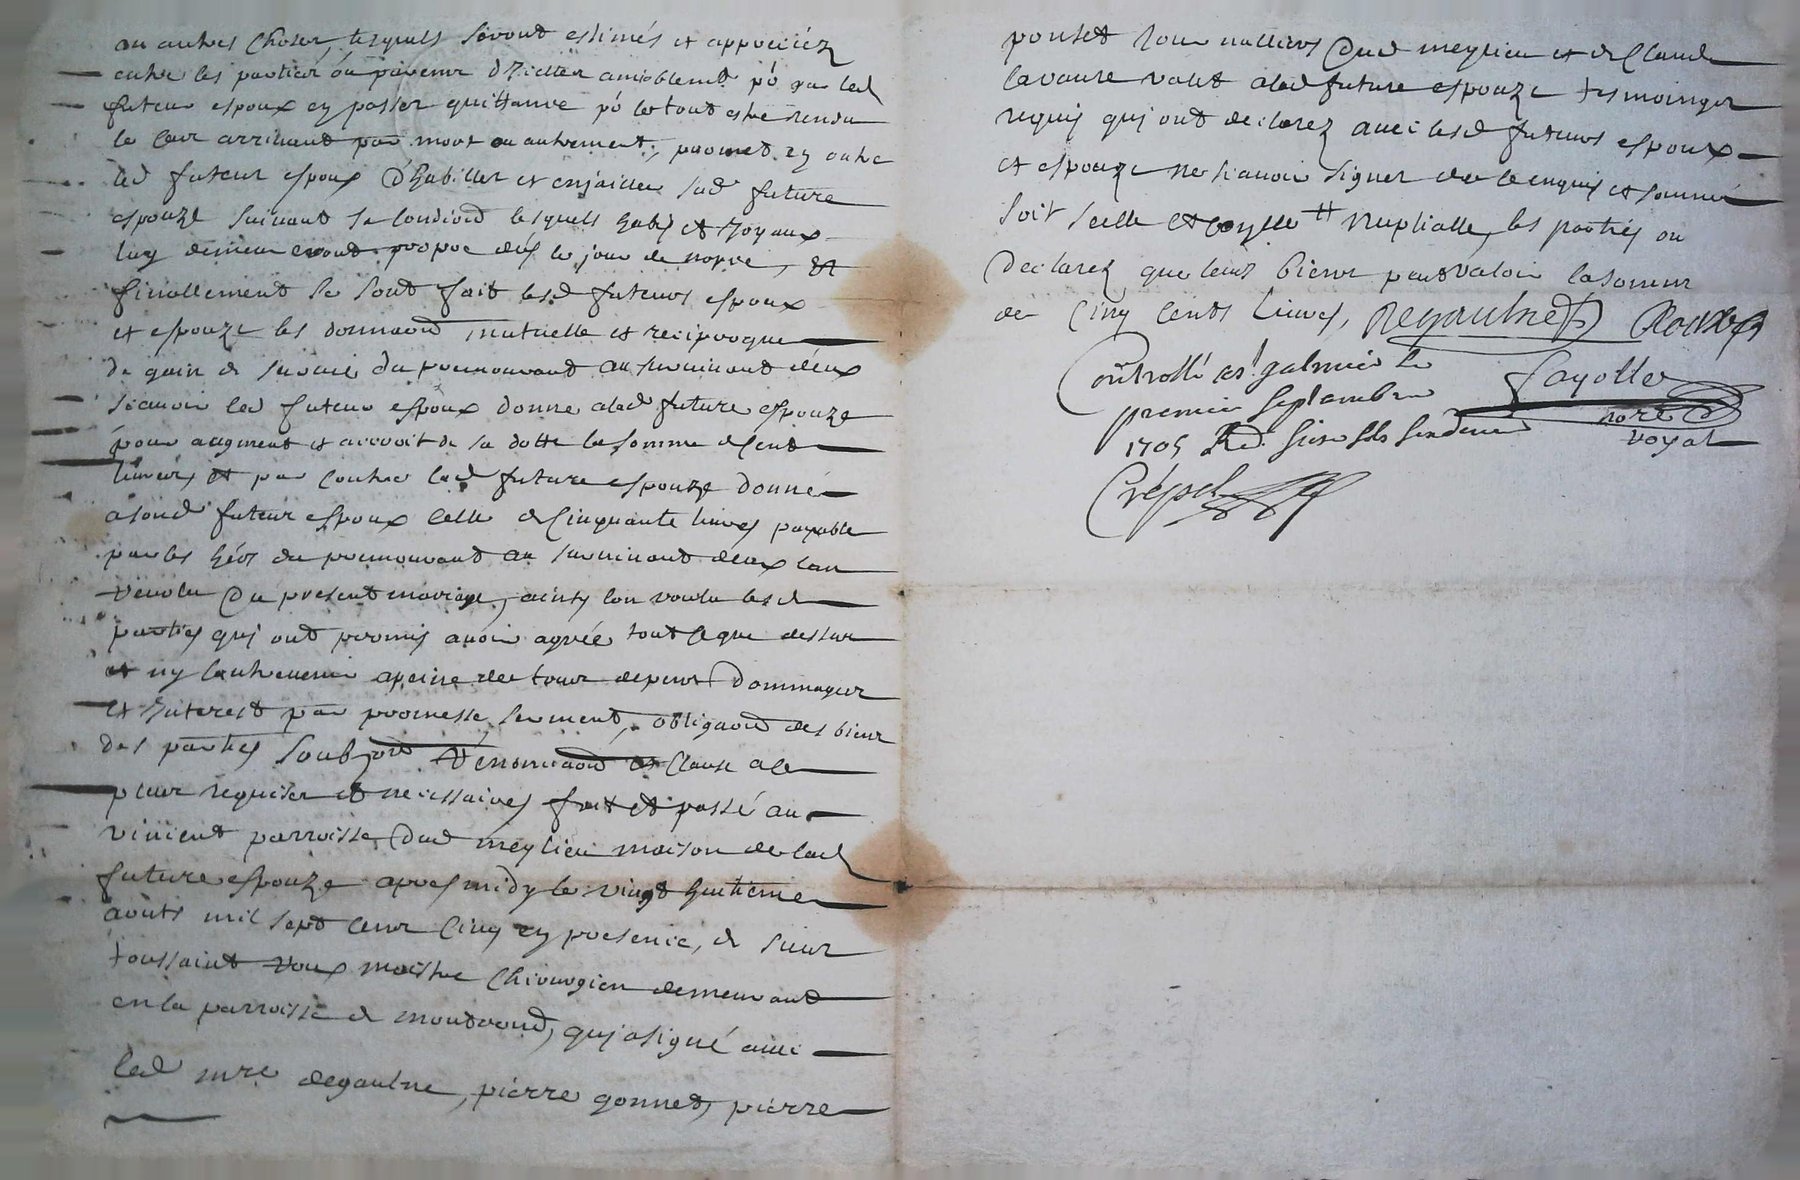 ou autres choses, lesquels seront estimés et appreciéz
entre les parties ou par venir d'Icelles amiablemt po. par led
futeur espoux en passer quittance po. le tout estre rendu
le cas arrivant par mort ou autrement, promet en outre
led futeur espoux d'habiller et enjailler sad future
espouze suivant sa condiond lesquels habis et Joyaux
luy demeureront propre dés le jour de nopce, et
finallement se sont fait lesd futeurs espoux
et espouze les donnaond mutuelle et reciproque
de gain de survie du premourant au survivant deux
scavoir led futeur espoux donne alad future espouze
pour augment et accroit de sa dotte la somme de cent
livres et par contre lad future espouze donne
asond futeur espoux celle de cinquante livres payable
par les hérs du premourant au survivant deux lan
revolu du present mariage, ainsy lon voulu lesd
parties quj ont promis avoir agrée tout ce que dessus
et ny contrevenir apeine de tous depens dommages
et Interest par promesse serment, obligaond des biens
des parties soubzond Renonciaond et clause ale
plus requises et necessaires fait et passé au
vinient parroisse dud meylieu maison de lad
future espouze apres midy le vingt huitieme
aouts mil sept cens cinq en presence, de sieur
toussaint roux maistre chirurgien demeurant
en la parroisse de montrond, quj a signé avec
led mre degaulne, pierre gonnet, pierre
ponset tous dud meylieu et de Claude
lavaure valet alad future espouze tesmoingz
requis quj ont declarez avec lesd futeurs espoux
et espouze ne scavoir signer de ce enquis et sommé
soit scelle et Nuptialle, les parties on
declarez que leurs biens peut valoir la somme
de cinq cents livres, Degaulne Roux
Controllé a st. galmier le
premier septembre
1705 Rd.
Crespet
fayolle
nore
royal